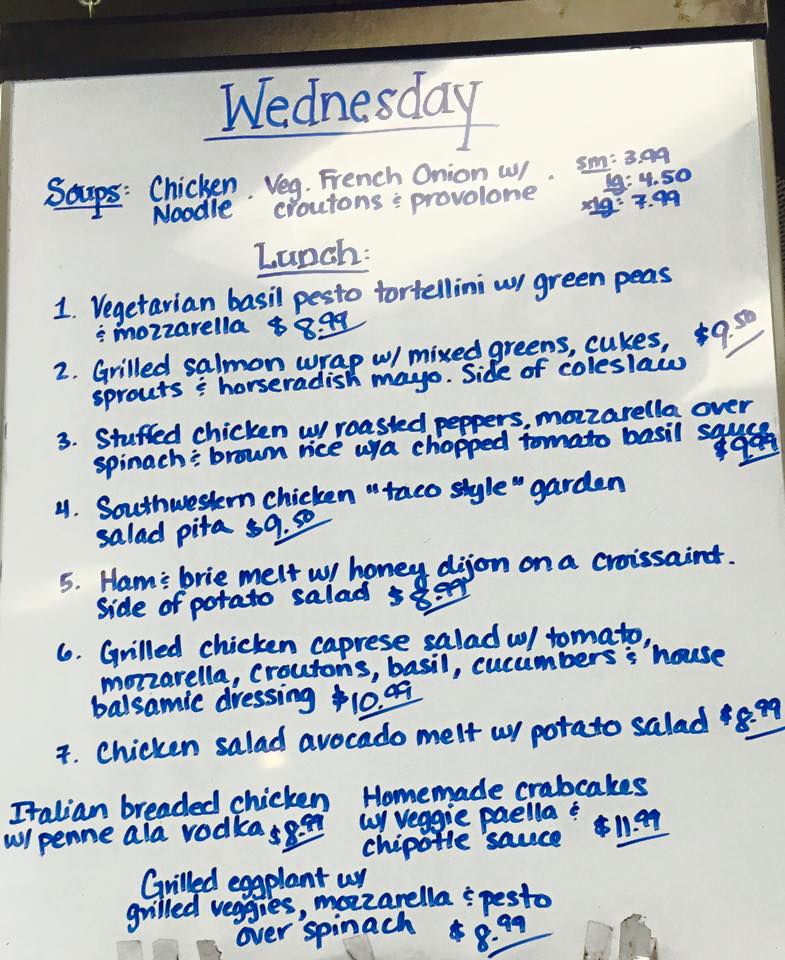 Wednesday
Soups: Chicken Noodle . Veg. French Onion w/ croutons & provolone . sm: 3.99
lg: 4.50
xlg: 7.99
Lunch:
1. Vegetarian basil pesto tortellini w/ green peas
& mozzarella $8.99
2. Grilled salmon wrap w/ mixed greens, cukes,
sprouts & horseradish mayo. Side of coleslaw $9.50
3. Stuffed chicken w/ roasted peppers, mozzarella over
spinach & brown rice w/a chopped tomato basil sauce
$9.99
4. Southwestern chicken "taco style" garden
salad pita $9.50
5. Ham & brie melt w/ honey dijon on a croissaint.
Side of potato salad $8.99
6. Grilled chicken caprese salad w/ tomato,
mozzarella, croutons, basil, cucumbers & house
balsamic dressing $10.99
7. Chicken salad avocado melt w/ potato salad $8.99
Italian breaded chicken
w/ penne ala vodka $8.99
Homemade crabcakes
w/ veggie paella &
chipotle sauce $11.99
Grilled eggplant w/
grilled veggies, mozzarella & pesto
over spinach $8.99